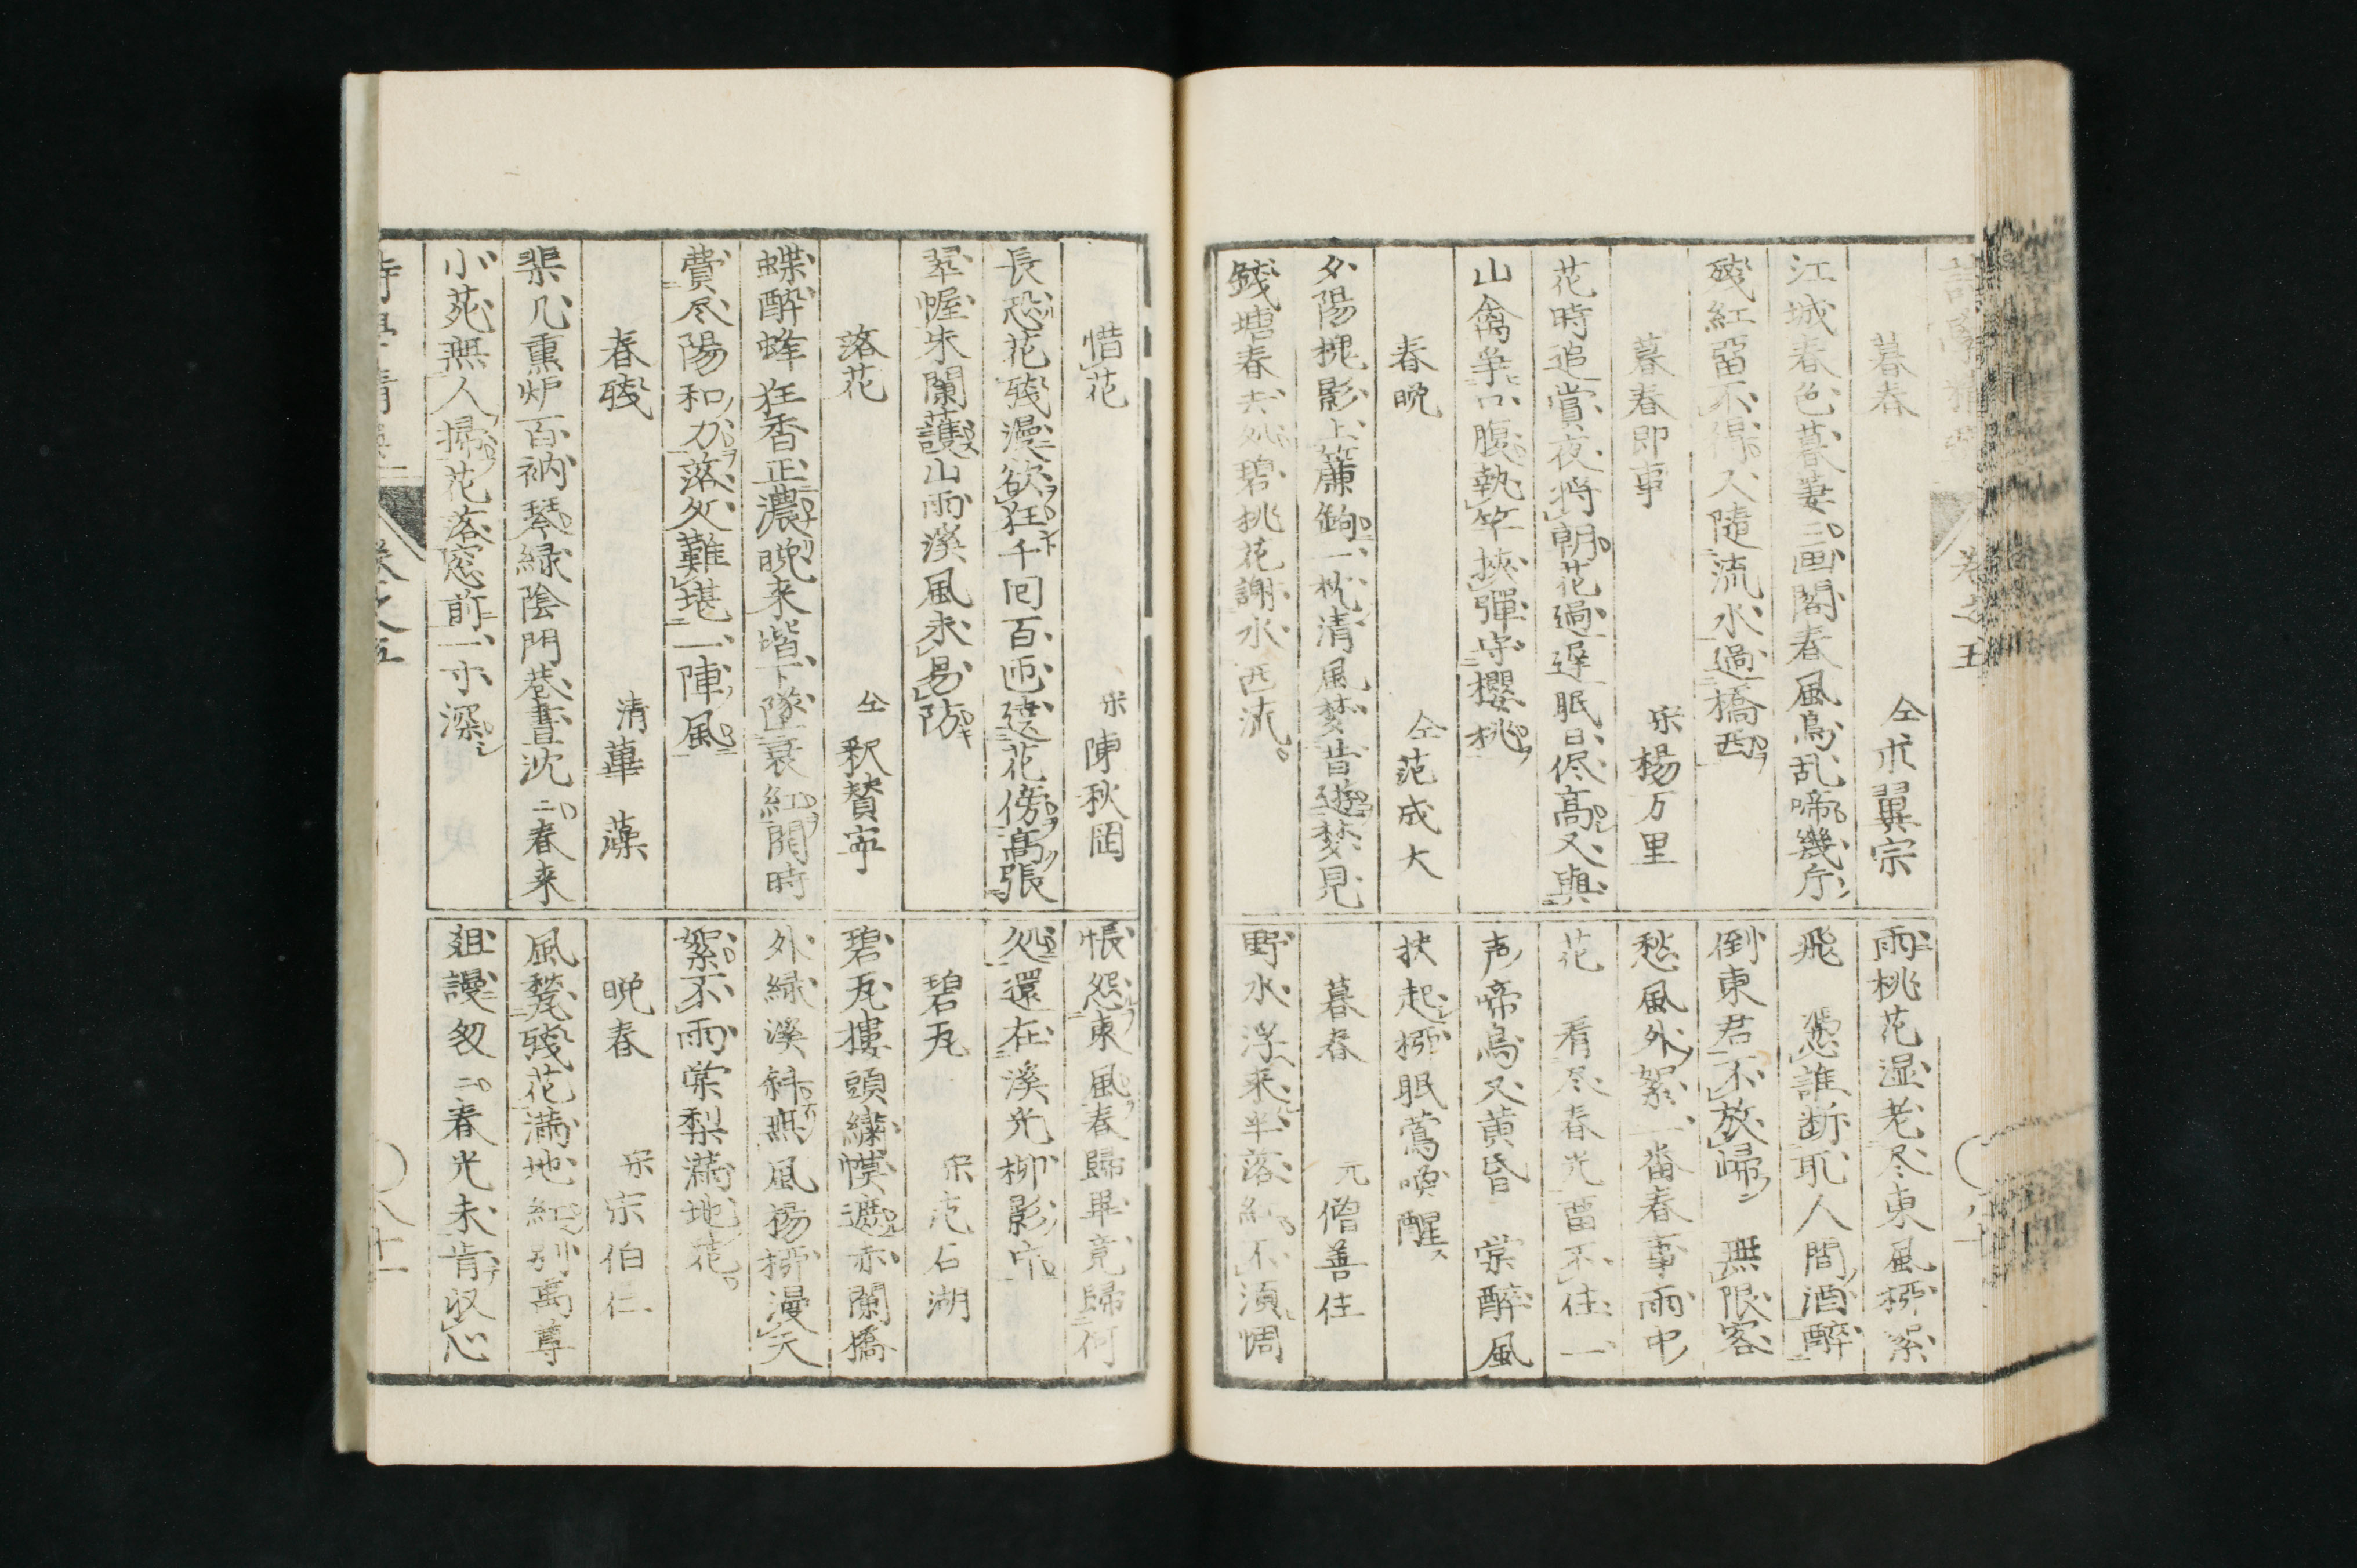 暮春　仝朮翼宗
江城春色暮萋〻画閣春風鳥乱啼幾斤
残紅畱不得又隨流水過橋西
暮春即事　宋楊万里
花時追賞夜将朝花過遅眠日侭高又與
山禽争口腹執竿挟彈守櫻桃
春晩　仝范成大
夕陽槐影上簾鉤一枕清風夢昔遊夢見
銭塘春去処碧桃花謝水西流
雨桃花湿老尽東風柳絮
飛　憑誰断取人間酒醉
倒東君不放帰　無限客
愁風外絮一番春事雨中
花　看尽春光畱不住一
声啼鳥又黄昏　棠醉風
扶起柳眠鶯喚醒
暮春　元僧善住
野水浮来半落紅不須惆
惜花　宋陳秋岡
長恐花残漫欲狂千回百匝遶花傍高張
翠幄朱闌護山雨溪風未易防
落花　仝釈賛寧
蝶酔蜂狂香正濃晩来堦下墜衰紅開時
費尽陽和力落処難堪一陣風
春残　清華藻
棐几熏炉百衲琴緑陰門巷晝沈〻春来
小苑無人掃花落窓前一寸深
悵怨東風春歸畢竟歸何
処還在溪光柳影中
碧瓦　宋范石湖
碧瓦樓頭繍幙遮赤闌橋
外緑溪斜無風楊柳漫天
絮不雨棠梨満地花
晩春　宋宗伯仁
風攪残花満地紅別寓尊
爼謾匆〻春光未肯収心